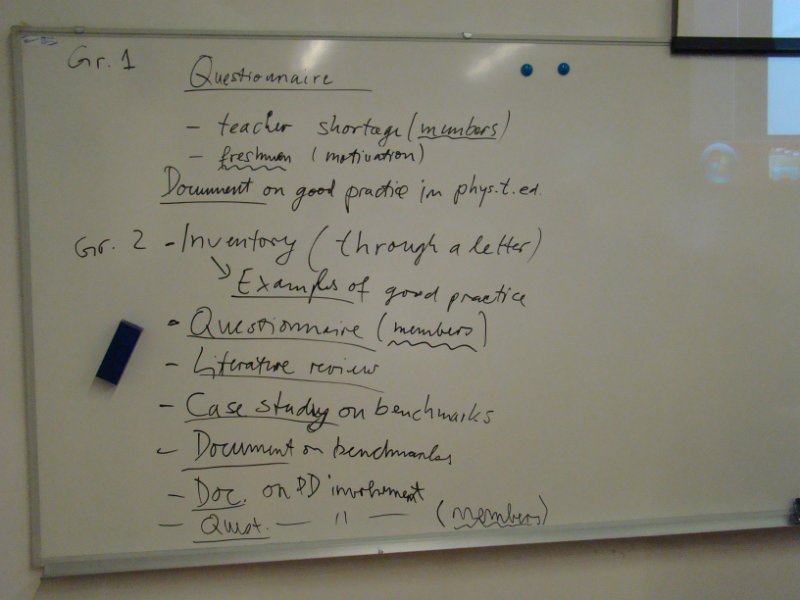 Gr. 1
Questionnaire
- teacher shortage (members)
- freshmen (motivation)
Document on good practice in phys.t.ed.
Gr. 2 - Inventory (through a letter)
↘ Examples of good practice
- Questionnaire (members)
- Literature review
- Case study on benchmarks
- Document on benchmarks
- Doc. on PD involvement
- Quest. — 〃 — (members)